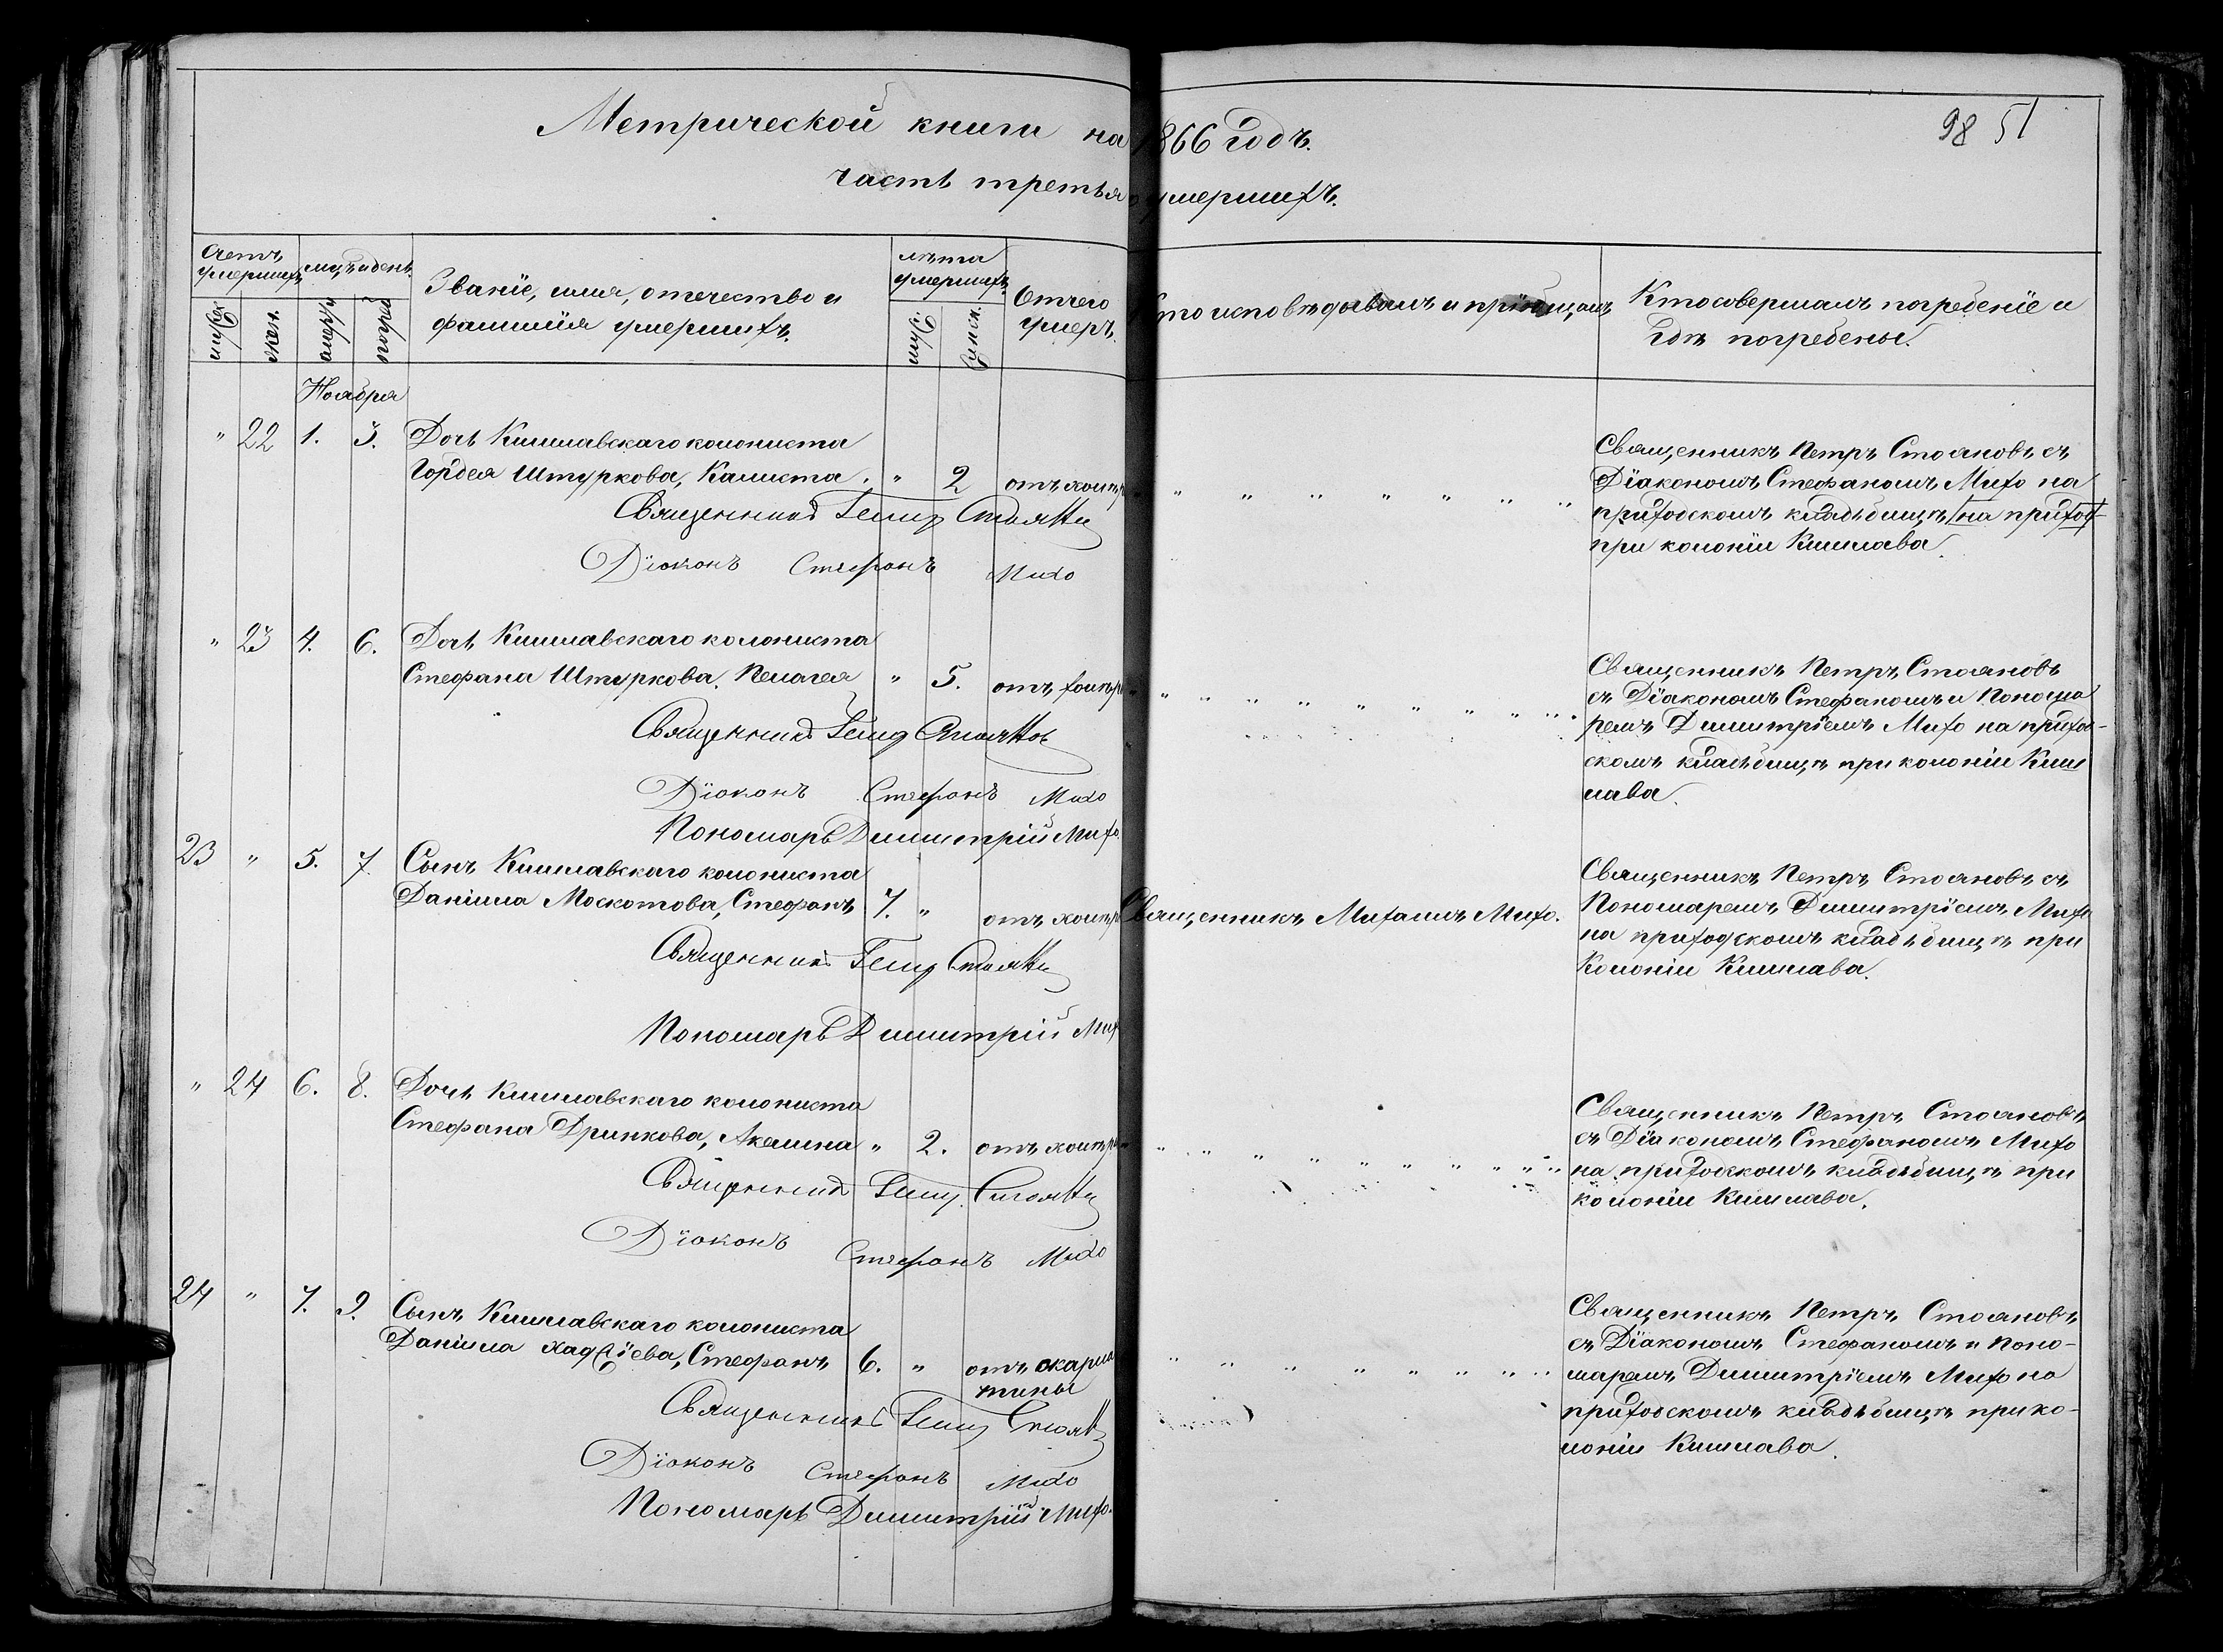 Метрической книги на 1866 годъ.
часть третья о умершихъ.
98 51
Счетъ умершихъ
мѣс. и день
Званіе, имя, отчество и фамилія умершихъ.
лѣта умершихъ
Отчего умеръ.
Кто исповѣдывалъ и пріобщалъ
Кто совершалъ погребеніе и гдѣ погребены.
муж.
жен.
погреб
муж.
женск.
Ноября
" 22 1. 3. Дочь Кишлавскаго колониста
Гордея Штуркова, Калиста. " 2 отъ холеры
Священникъ Петръ Стояновъ
Діаконъ Стефанъ Михо
Священникъ Петръ Стояновъ съ
Діакономъ Стефаномъ Михо на
приходскомъ кладбищѣ на приход
при колоніи Кишлава.
" 23 4. 6. Дочь Кишлавскаго колониста
Стефана Штуркова, Пелагея " 5. отъ холеры
Священникъ Петръ Стояновъ
Діаконъ Стефанъ Михо
Пономарь Димитрій Михо
Священникъ Петръ Стояновъ
съ Діакономъ Стефаномъ и Понома
ремъ Димитріемъ Михо на приход-
скомъ кладбищѣ при колоніи Киш
лава.
23 " 5. 7. Сынъ Кишлавскаго колониста
Даніила Москотова, Стефанъ 7. " отъ холеры
Священникъ Михаилъ Михо.
Священникъ Петръ Стояновъ
Пономарь Димитрій Мих
Священникъ Петръ Стояновъ съ
Пономаремъ Димитріемъ Михо
на приходскомъ кладбищѣ при
Колоніи Кишлава.
" 24 6. 8. Дочь Кишлавскаго колониста
Стефана Дринкова, Акилина " 2. отъ холеры
Священникъ Петръ Стояновъ
Діаконъ Стефанъ Михо
Священникъ Петръ Стояновъ
съ Діакономъ Стефаномъ Михо
на приходскомъ кладбищѣ при
колоніи Кишлава.
24 " 7. 9. Сынъ Кишлавскаго колониста
Даніила Хаджіева, Стефанъ 6. " отъ скарла
тины
Священникъ Петръ Стоян
Діаконъ Стефанъ Михо
Пономарь Димитрій Михо.
Священникъ Петръ Стояновъ
съ Діакономъ Стефаномъ и Поно-
маремъ Димитріемъ Михо на
приходскомъ кладбищѣ при ко-
лоніи Кишлава.